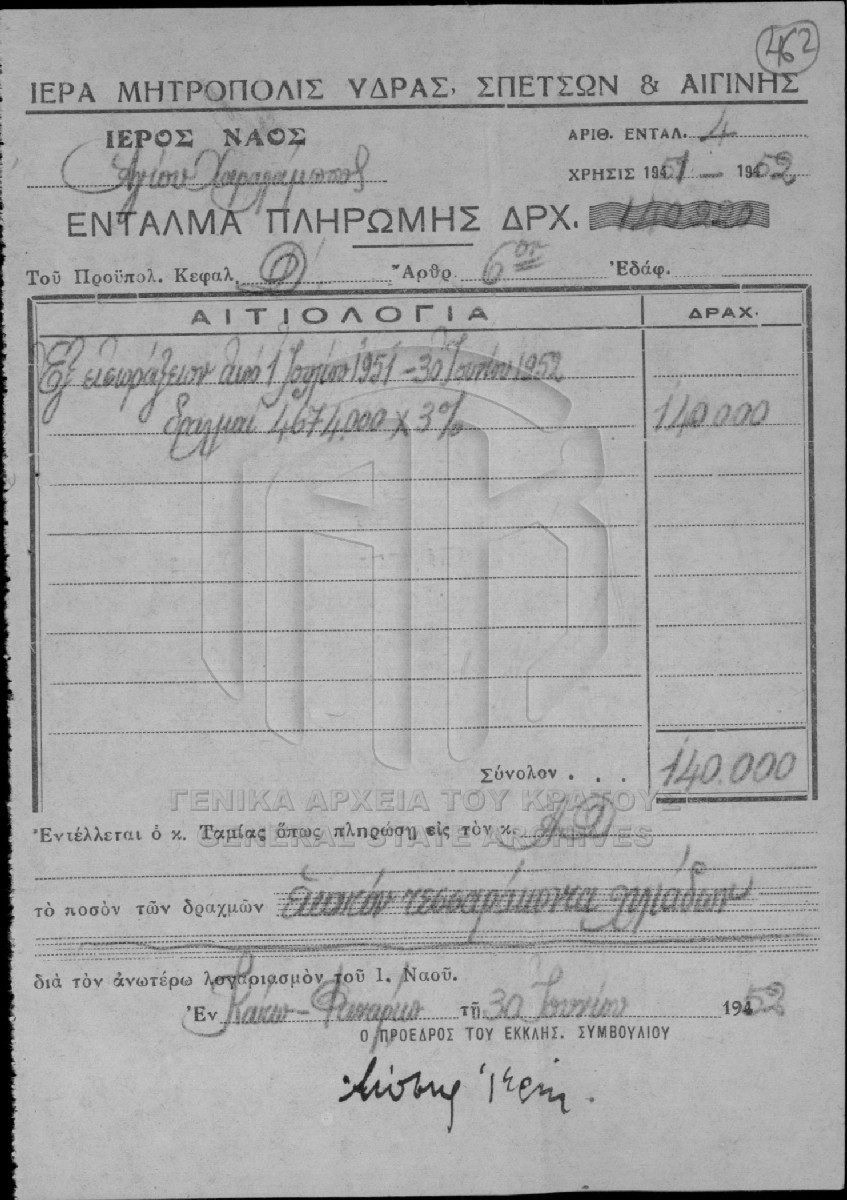 462
ΙΕΡΑ ΜΗΤΡΟΠΟΛΙΣ ΥΔΡΑΣ, ΣΠΕΤΣΩΝ & ΑΙΓΙΝΗΣ
ΙΕΡΟΣ ΝΑΟΣ
Αγίου Χαραλάμπους
ΑΡΙΘ. ΕΝΤΑΛ. 4
ΧΡΗΣΙΣ 1951 - 1952
ΕΝΤΑΛΜΑ ΠΛΗΡΩΜΗΣ ΔΡΧ. 140220
Τοῦ Προϋπολ. Κεφαλ. Ἄρθρ. 6ον Ἐδάφ.
ΑΙΤΙΟΛΟΓΙΑ ΔΡΑΧ.
Ἐξ εισπράξεων από 1 Ιουλίου 1951 - 30 Ιουνίου 1952
δραχμαί 4674.000 x 3% 140.000
Σύνολον . . . 140.000
ΓΕΝΙΚΑ ΑΡΧΕΙΑ ΤΟΥ ΚΡΑΤΟΥΣ
GENERAL STATE ARCHIVES
Ἐντέλλεται ὁ κ. Ταμίας ὅπως πληρώσῃ εἰς τὸν κ.
τὸ ποσὸν τῶν δραχμῶν Ἑκατόν τεσσαράκοντα χιλιάδων
διὰ τὸν ἀνωτέρω λογαριασμὸν τοῦ Ι. Ναοῦ.
Ἐν τῇ 30 Ιουνίου 19452
Ο ΠΡΟΕΔΡΟΣ ΤΟΥ ΕΚΚΛΗΣ. ΣΥΜΒΟΥΛΙΟΥ